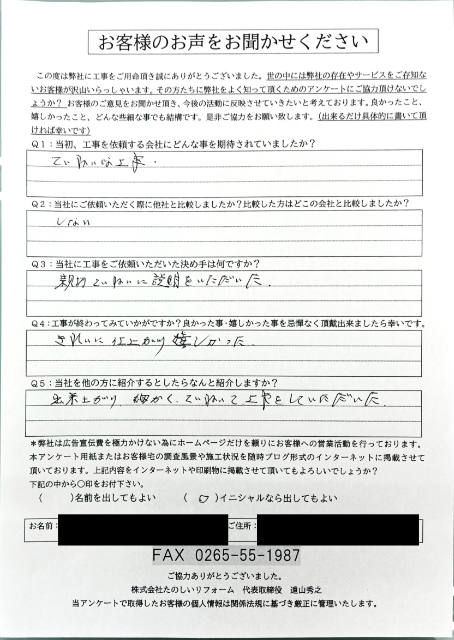 お客様のお声をお聞かせください
この度は弊社に工事をご用命頂き誠にありがとうございました。世の中には弊社の存在やサービスをご存知な
いお客様が沢山いらっしゃいます。その方たちに弊社をよく知って頂くためのアンケートにご協力頂けないでし
ょうか？お客様のご意見をお聞かせ頂き、今後の活動に反映させていきたいと考えております。良かったこと、
嬉しかったこと、どんな些細な事でも結構です。是非ご協力をお願い致します。（出来るだけ具体的に書いて頂
ければ幸いです）
Q1：当初、工事を依頼する会社にどんな事を期待されていましたか？
ていねいな工事.
Q2：当社にご依頼いただく際に他社と比較しましたか？比較した方はどこの会社と比較しましたか？
しない
Q3：当社に工事をご依頼いただいた決め手は何ですか？
親切ていねいに説明をいただいた.
Q4：工事が終わってみていかがですか？良かった事・嬉しかった事を忌憚なく頂戴出来ましたら幸いです。
きれいに仕上がり嬉しかった.
Q5：当社を他の方に紹介するとしたらなんと紹介しますか？
出来上がり、細かく、ていねいで工事をしていただいた.
＊弊社は広告宣伝費を極力かけない為にホームページだけを頼りにお客様への営業活動を行っております。
本アンケート用紙またはお客様宅の調査風景や施工状況を随時ブログ形式のインターネットに掲載させて
頂いております。上記内容をインターネットや印刷物に掲載させて頂いてもよろしいでしょうか？
下記の中から○印をお付下さい。
（　）名前を出してもよい　（○）イニシャルなら出してもよい
お名前：　ご住所：
FAX 0265-55-1987
ご協力ありがとうございました。
株式会社たのしいリフォーム　代表取締役　遠山秀之
当アンケートで取得したお客様の個人情報は関係法規に基づき厳正に管理いたします。